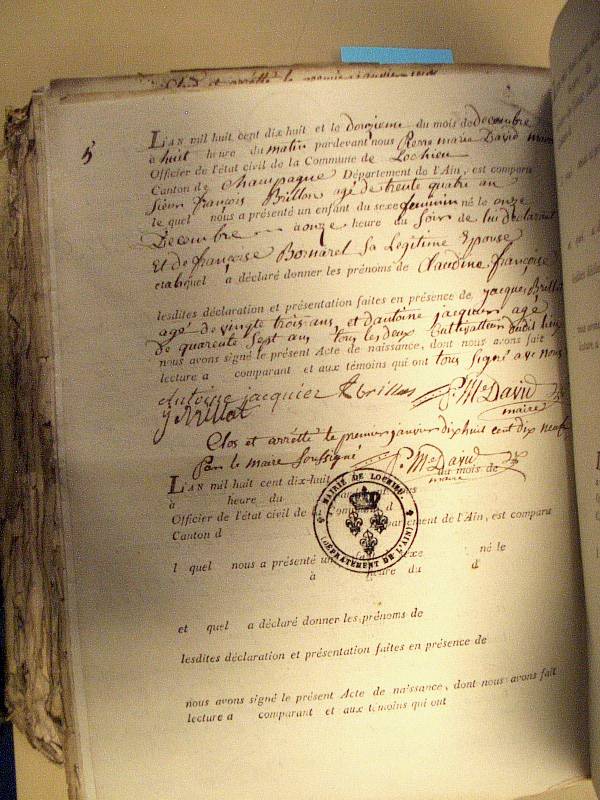 Clos et arrêtté le premier janvier
5
L'AN mil huit cent dix huit et le douzieme du mois de decembre
à huit heure du matin pardevant nous Pierre marie David maire
Officier de l'état civil de la Commune de Lochieu
Canton de Champagne Département de l'Ain, est comparu
Sieur françois Brillon agé de trente quatre an
le quel nous a présenté un enfant du sexe feminin né le onze
Decembre à onze heure du Soir de lui declarant
Et de françoise Bornarel Sa Légitime Epouse
et auquel a déclaré donner les prénoms de Claudine françoise
lesdites déclaration et présentation faites en présence de jacques Brillat
agé de vingte trois ans, et d'antoine jacquier agé
de quarente Sept ans tous les deux Cultivatteurs dudit lieu
nous avons signé le présent Acte de naissance, dont nous avons fait
lecture a comparant et aux témoins qui ont tous Signé avec nous
Antoine jacquier fbrillon P. Mie David
J Brillat maire
Clos et arrêtté le premier janvier dix huit cent dix neuf
Par le maire Soussigné P. Mie David
maire
L'AN mil huit cent dix-huit du mois de
à heure du nous
Officier de l'état civil de la Commune d
Canton d Département de l'Ain, est comparu
MAIRIE DE LOCHIEU.
(DÉPARTEMENT DE L'AIN)
l quel nous a présenté un sexe né le
à heure du d
et quel a déclaré donner les prénoms de
lesdites déclaration et présentation faites en présence de
nous avons signé le présent Acte de naissance, dont nous avons fait
lecture a comparant et aux témoins qui ont